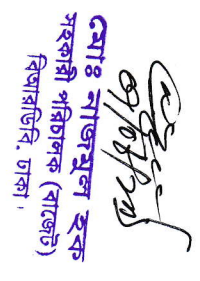 মোঃ নাজমুল হক
সহকারী পরিচালক (বাজেট)
বিআরডিবি, ঢাকা।